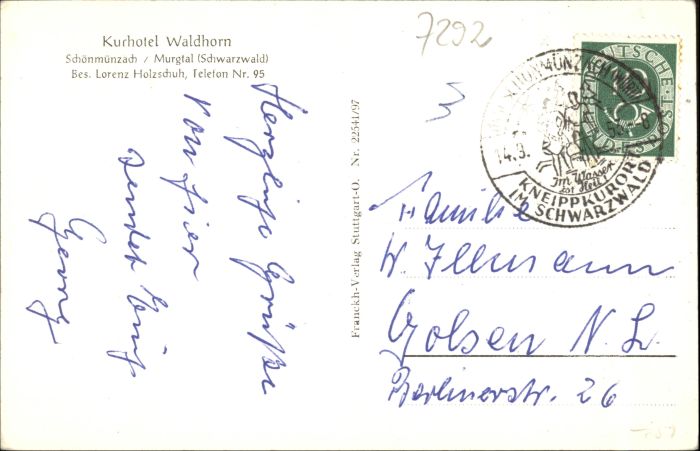 Kurhotel Waldhorn
Schönmünzach / Murgtal (Schwarzwald)
Bes. Lorenz Holzschuh, Telefon Nr. 95
Herzliche Grüße
von hier
sendet Euch
Georg
Franckh-Verlag Stuttgart-O. Nr. 22541/97
7292
DEUTSCHE POST
14.9.
Im Wasser
ist Heil!
KNEIPPKURORT
IM SCHWARZWALD
Familie
W. Illmann
Golsen N. L.
Berlinerstr. 26